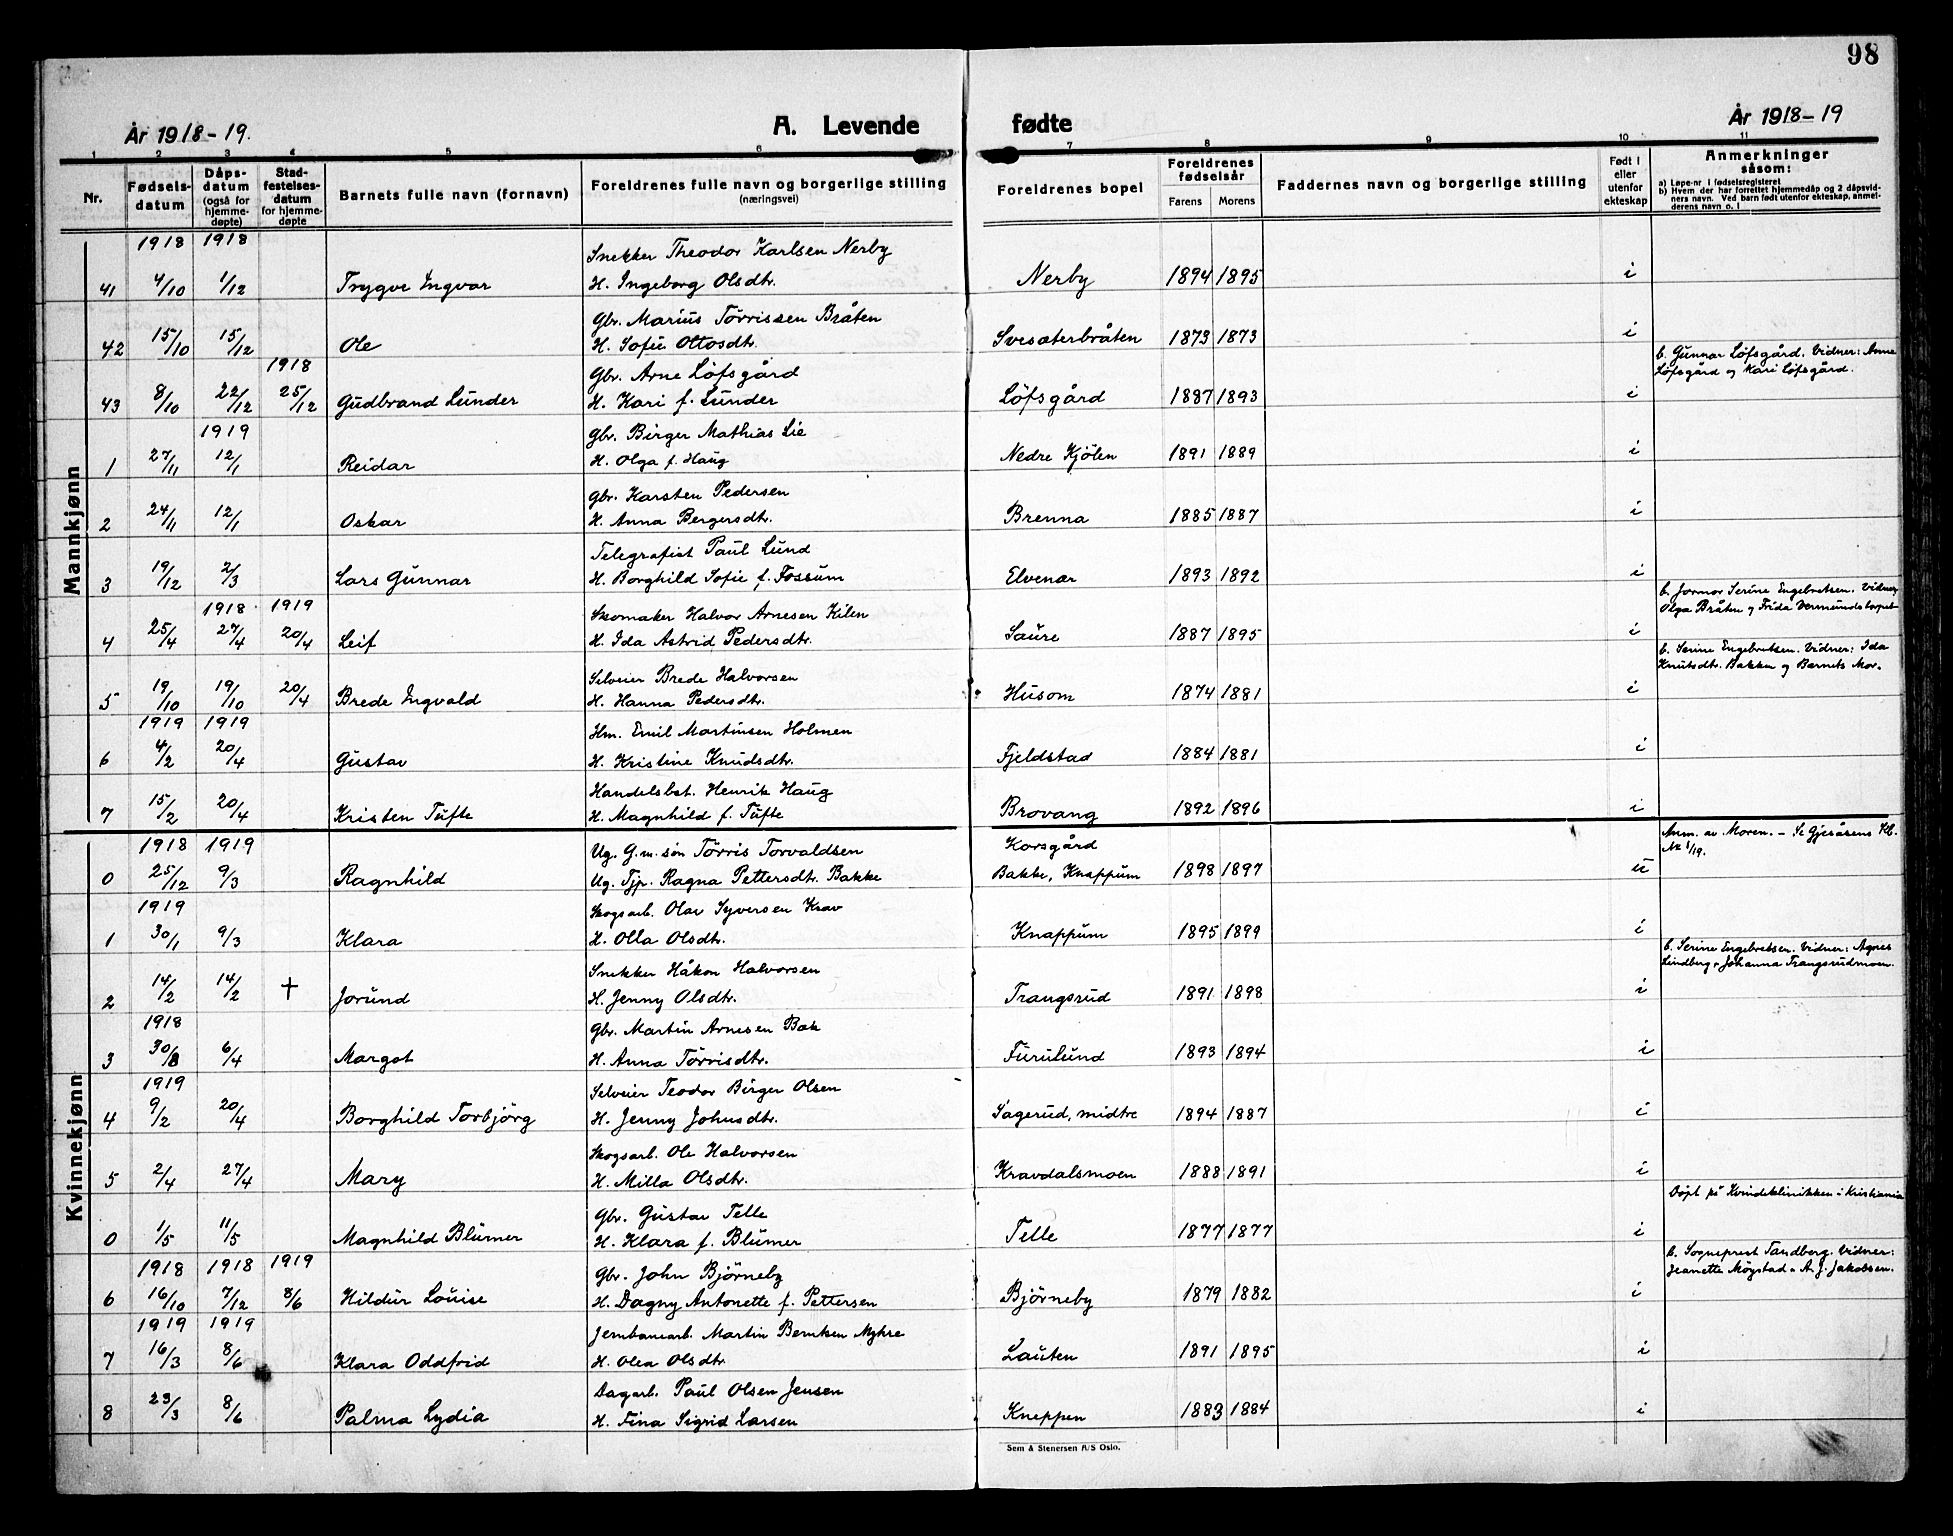 98
År 1918-19.
A. Levende fødte
År 1918-19
1 2 3 4 5 6 7 8 9 10 11
Nr.
Fødsels-datum
Dåps-datum (også for hjemme-døpte)
Stad-festelses-datum for hjemme-døpte
Barnets fulle navn (fornavn)
Foreldrenes fulle navn og borgerlige stilling (næringsvei)
Foreldrenes bopel
Foreldrenes fødselsår
Farens Morens
Faddernes navn og borgerlige stilling
Født i eller utenfor ekteskap
Anmerkninger såsom:
a) Løpe-nr i fødselsregisteret
b) Hvem der har forrettet hjemmedåp og 2 dåpsvidners navn. Ved barn født utenfor ekteskap, anmelderens navn o. l
Mannkjønn
1918 1918 Snekker Theodor Karlsen Nerby
41 4/10 1/12 Trygve Ingvar H. Ingeborg Olsdtr. Nerby 1894 1895 i
Gbr. Marius Tørrissen Bråten
42 15/10 15/12 Ole H. Sofie Ottosdtr. Svesæterbråten 1873 1873 i
1918 Gbr. Arne Løfsgård b. Gunnar Løfsgård. Vidner: Anne
Løfsgård og Kari Løfsgård.
43 8/10 22/12 25/12 Gudbrand Lunder H. Kari f. Lunder Løfsgård 1887 1893 i
1919 Gbr. Birger Mathias Lie
1 27/11 12/1 Reidar H. Olga f. Haug Nedre Kjølen 1891 1889 i
Gbr. Karsten Pedersen
2 24/11 12/1 Oskar H. Anna Bergersdtr. Brenna 1885 1887 i
Telegrafist Paul Lund
3 19/12 2/3 Lars Gunnar H. Borghild Sofie f. Fossum Elvenær 1893 1892 i
1918 1919 Skomaker Halvor Arnesen Kilen b. Jormor Serine Engebretsen. Vidner
Olga Bråten og Frida
4 25/4 27/4 20/4 Leif H. Ida Astrid Pedersdtr. Saure 1887 1895 i
Selveier Brede Halvorsen b. Serine Engebretsen. Vidner: Ida
Knutsdtr. Bakken og Barnets Mor.
5 19/10 19/10 20/4 Brede Ingvald H. Hanna Pedersdtr. Husom 1874 1881 i
1919 1919 Hm. Emil Martinsen Holmen
6 4/2 20/4 Gustav H. Kristine Knudsdtr. Fjeldstad 1884 1881 i
Handelsbet. Henrik Haug
7 15/2 20/4 Kristen Tufte H. Magnhild f. Tufte Brovang 1892 1896 i
Kvinnekjønn
1918 1919 Ug. G.m. søn Tørris Torvaldsen Korsgård Anm. av Moren. – Se Gjesåsens Kb.
Nr 1/19.
0 25/12 9/3 Ragnhild Ug. Tjp. Ragna Pettersdtr. Bakke Bakke, Knappum 1898 1897 u
1919 Skogsarb. Olav Syversen Krav
1 30/1 9/3 Klara H. Olla Olsdtr. Knappum 1895 1899 i
Snekker Håkon Halvorsen b. Serine Engebretsen. Vidner: Agnes
Lindberg Johanna Trangsrudmoen.
2 14/2 14/2 † Jorund H. Jenny Olsdtr. Trangsrud 1891 1898 i
1918 Gbr. Martin Arnesen Bak
3 30/8 6/4 Margot H. Anna Tørrisdtr. Furulund 1893 1894 i
1919 Selveier Teodor Birger Olsen
4 9/2 20/4 Borghild Torbjörg H. Jenny Johnsdtr. Sagerud, midtre 1894 1887 i
Skogsarb. Ole Halvorsen
5 2/4 27/4 Mary H. Milla Olsdtr. Kravdalsmoen 1888 1891 i
Gbr. Gustav Telle Døpt på Kvindeklinikken i Kristiania
0 1/5 11/5 Magnhild Blumer H. Klara f. Blumer Telle 1877 1877 i
1918 1918 1919 Gbr. John Björneby b. Sogneprest Tandberg. Vidner:
Jeanette Møystad A. J. Jakobsen.
6 16/10 7/12 8/6 Hildur Louise H. Dagny Antonette f. Pettersen Björneby 1879 1882 i
1919 1919 Jernbanearb. Martin Berntsen Myhre
7 16/3 8/6 Klara Oddfrid H. Olea Olsdtr. Lauten 1891 1895 i
Dagarb. Paul Olsen Jensen
8 23/3 8/6 Palma Lydia H. Fina Sigrid Larsen Kneppen 1883 1884 i
Sem & Stenersen A/S Oslo.